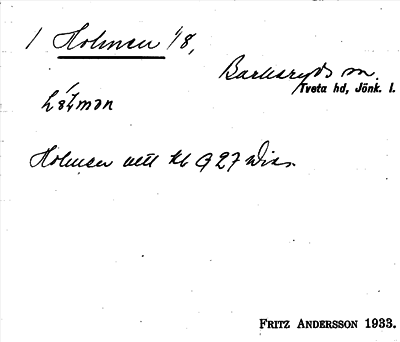 1 Holmen 1/8,
Barkeryds sn.
Tveta hd, Jönk. l.
Holmen utt kb G 27 Diss.
FRITZ ANDERSSON 1933.